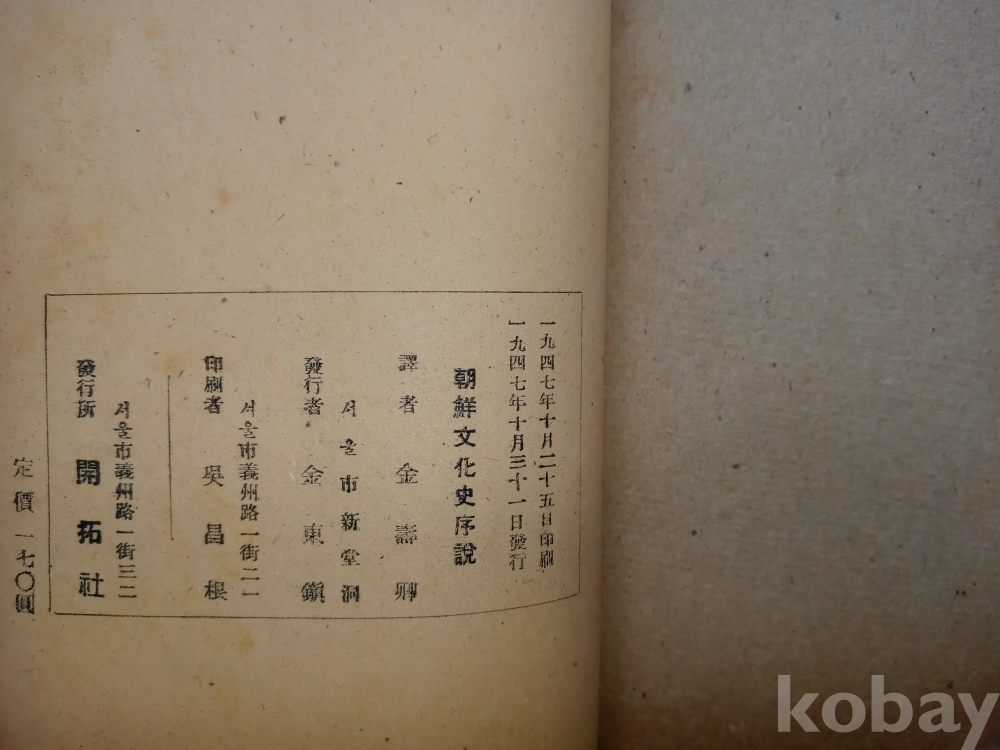 一九四七年十月二十五日印刷
一九四七年十月三十一日發行
朝鮮文化史序說
譯者 金壽卿
서울市新堂洞
發行者 金東鎭
서울市義州路一街二一
印刷者 吳昌根
서울市義州路一街三二
發行所 開拓社
定價 一七〇圓
kobay